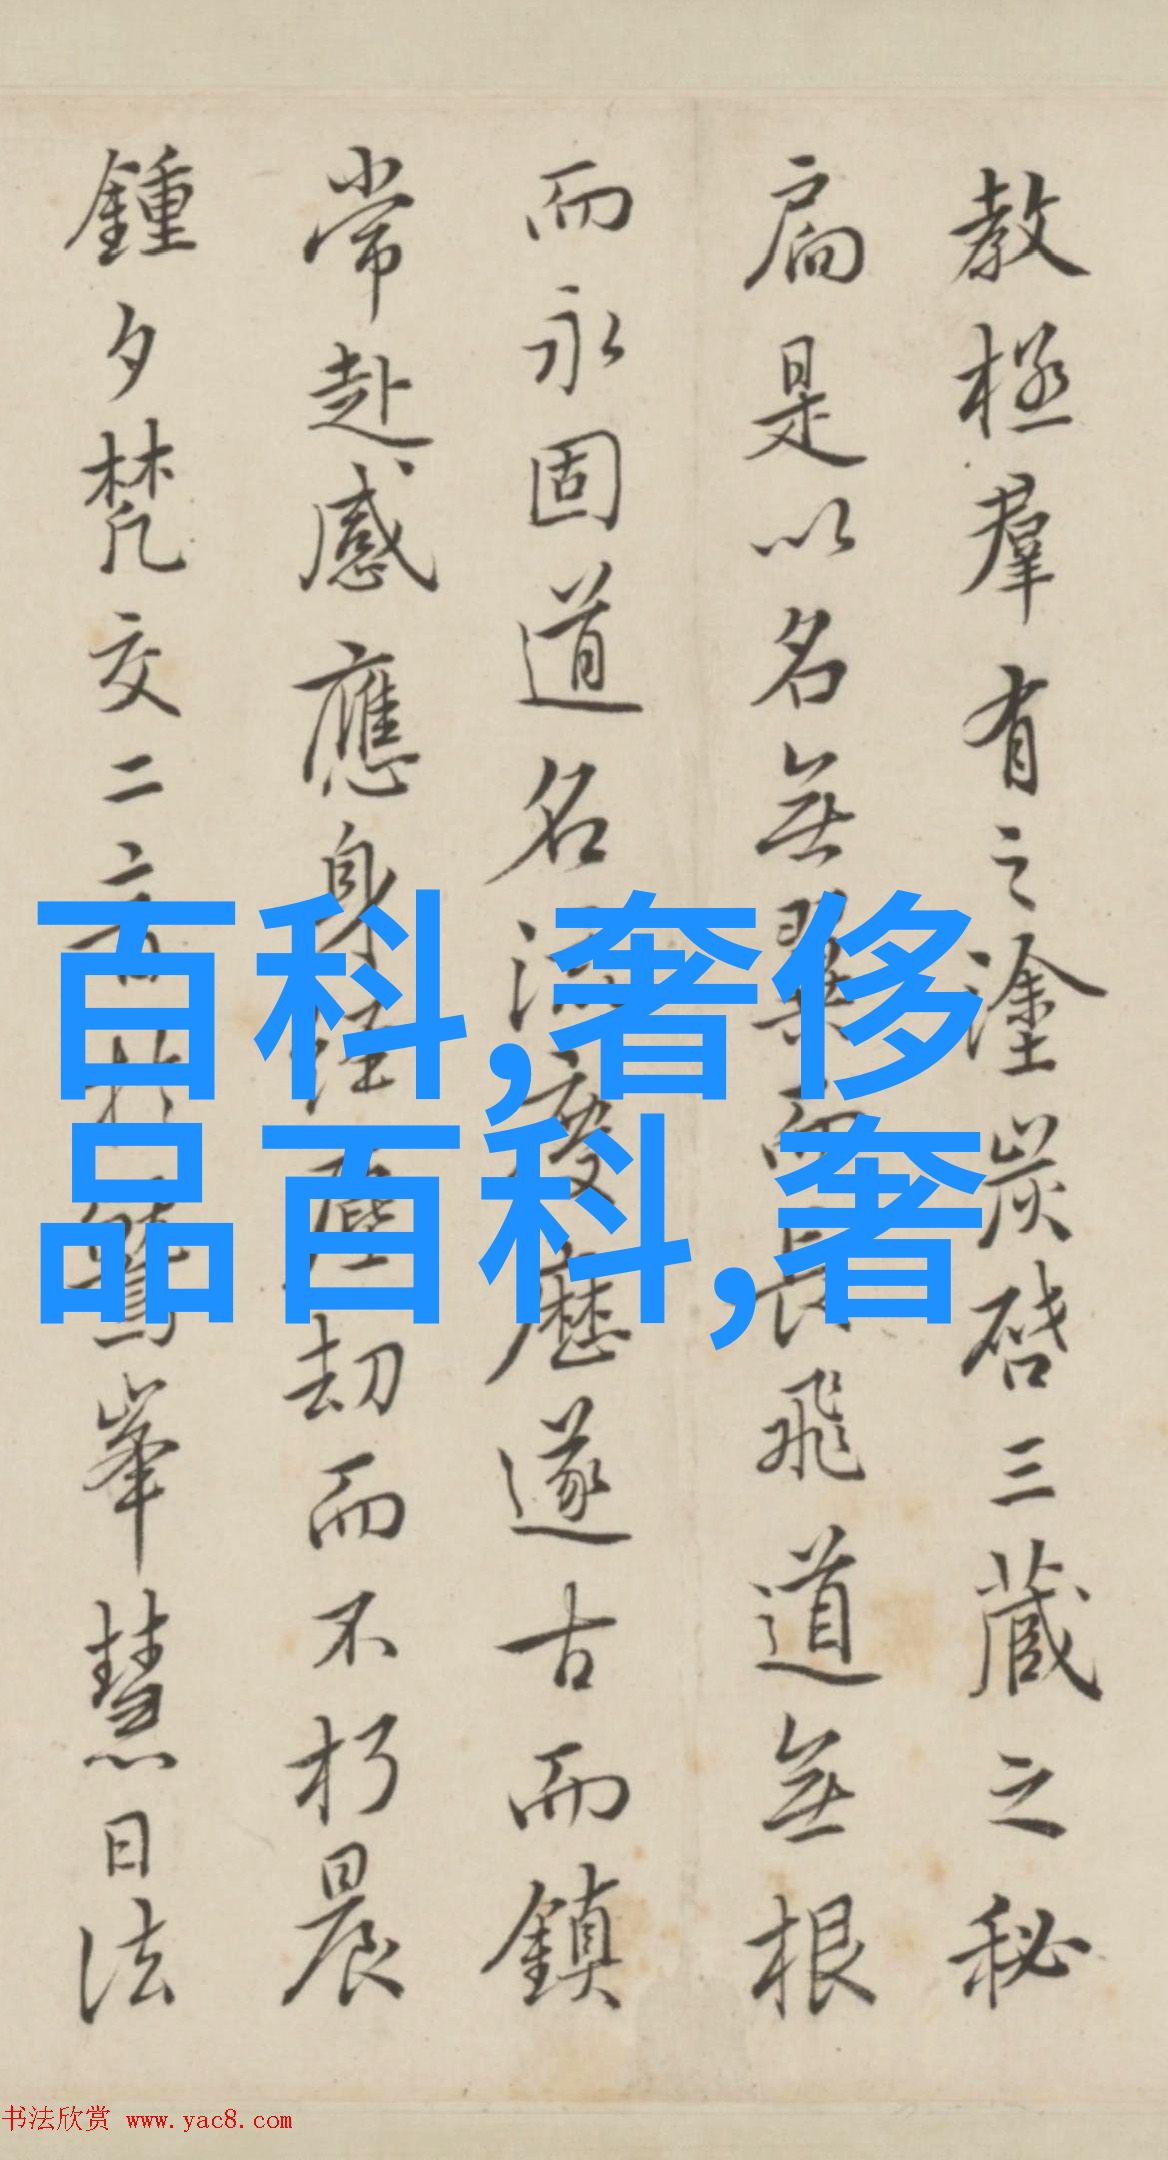 教極羣有之塗炭啓三藏之秘
扃是以名無翼而長飛道無根
而永固道名流慶歷遂古而鎮
常赴感應身經塵劫而不朽晨
鍾夕梵交二音於鷲峯慧日法
百科,奢侈
品百科,奢
书法欣赏 www.yac8.com